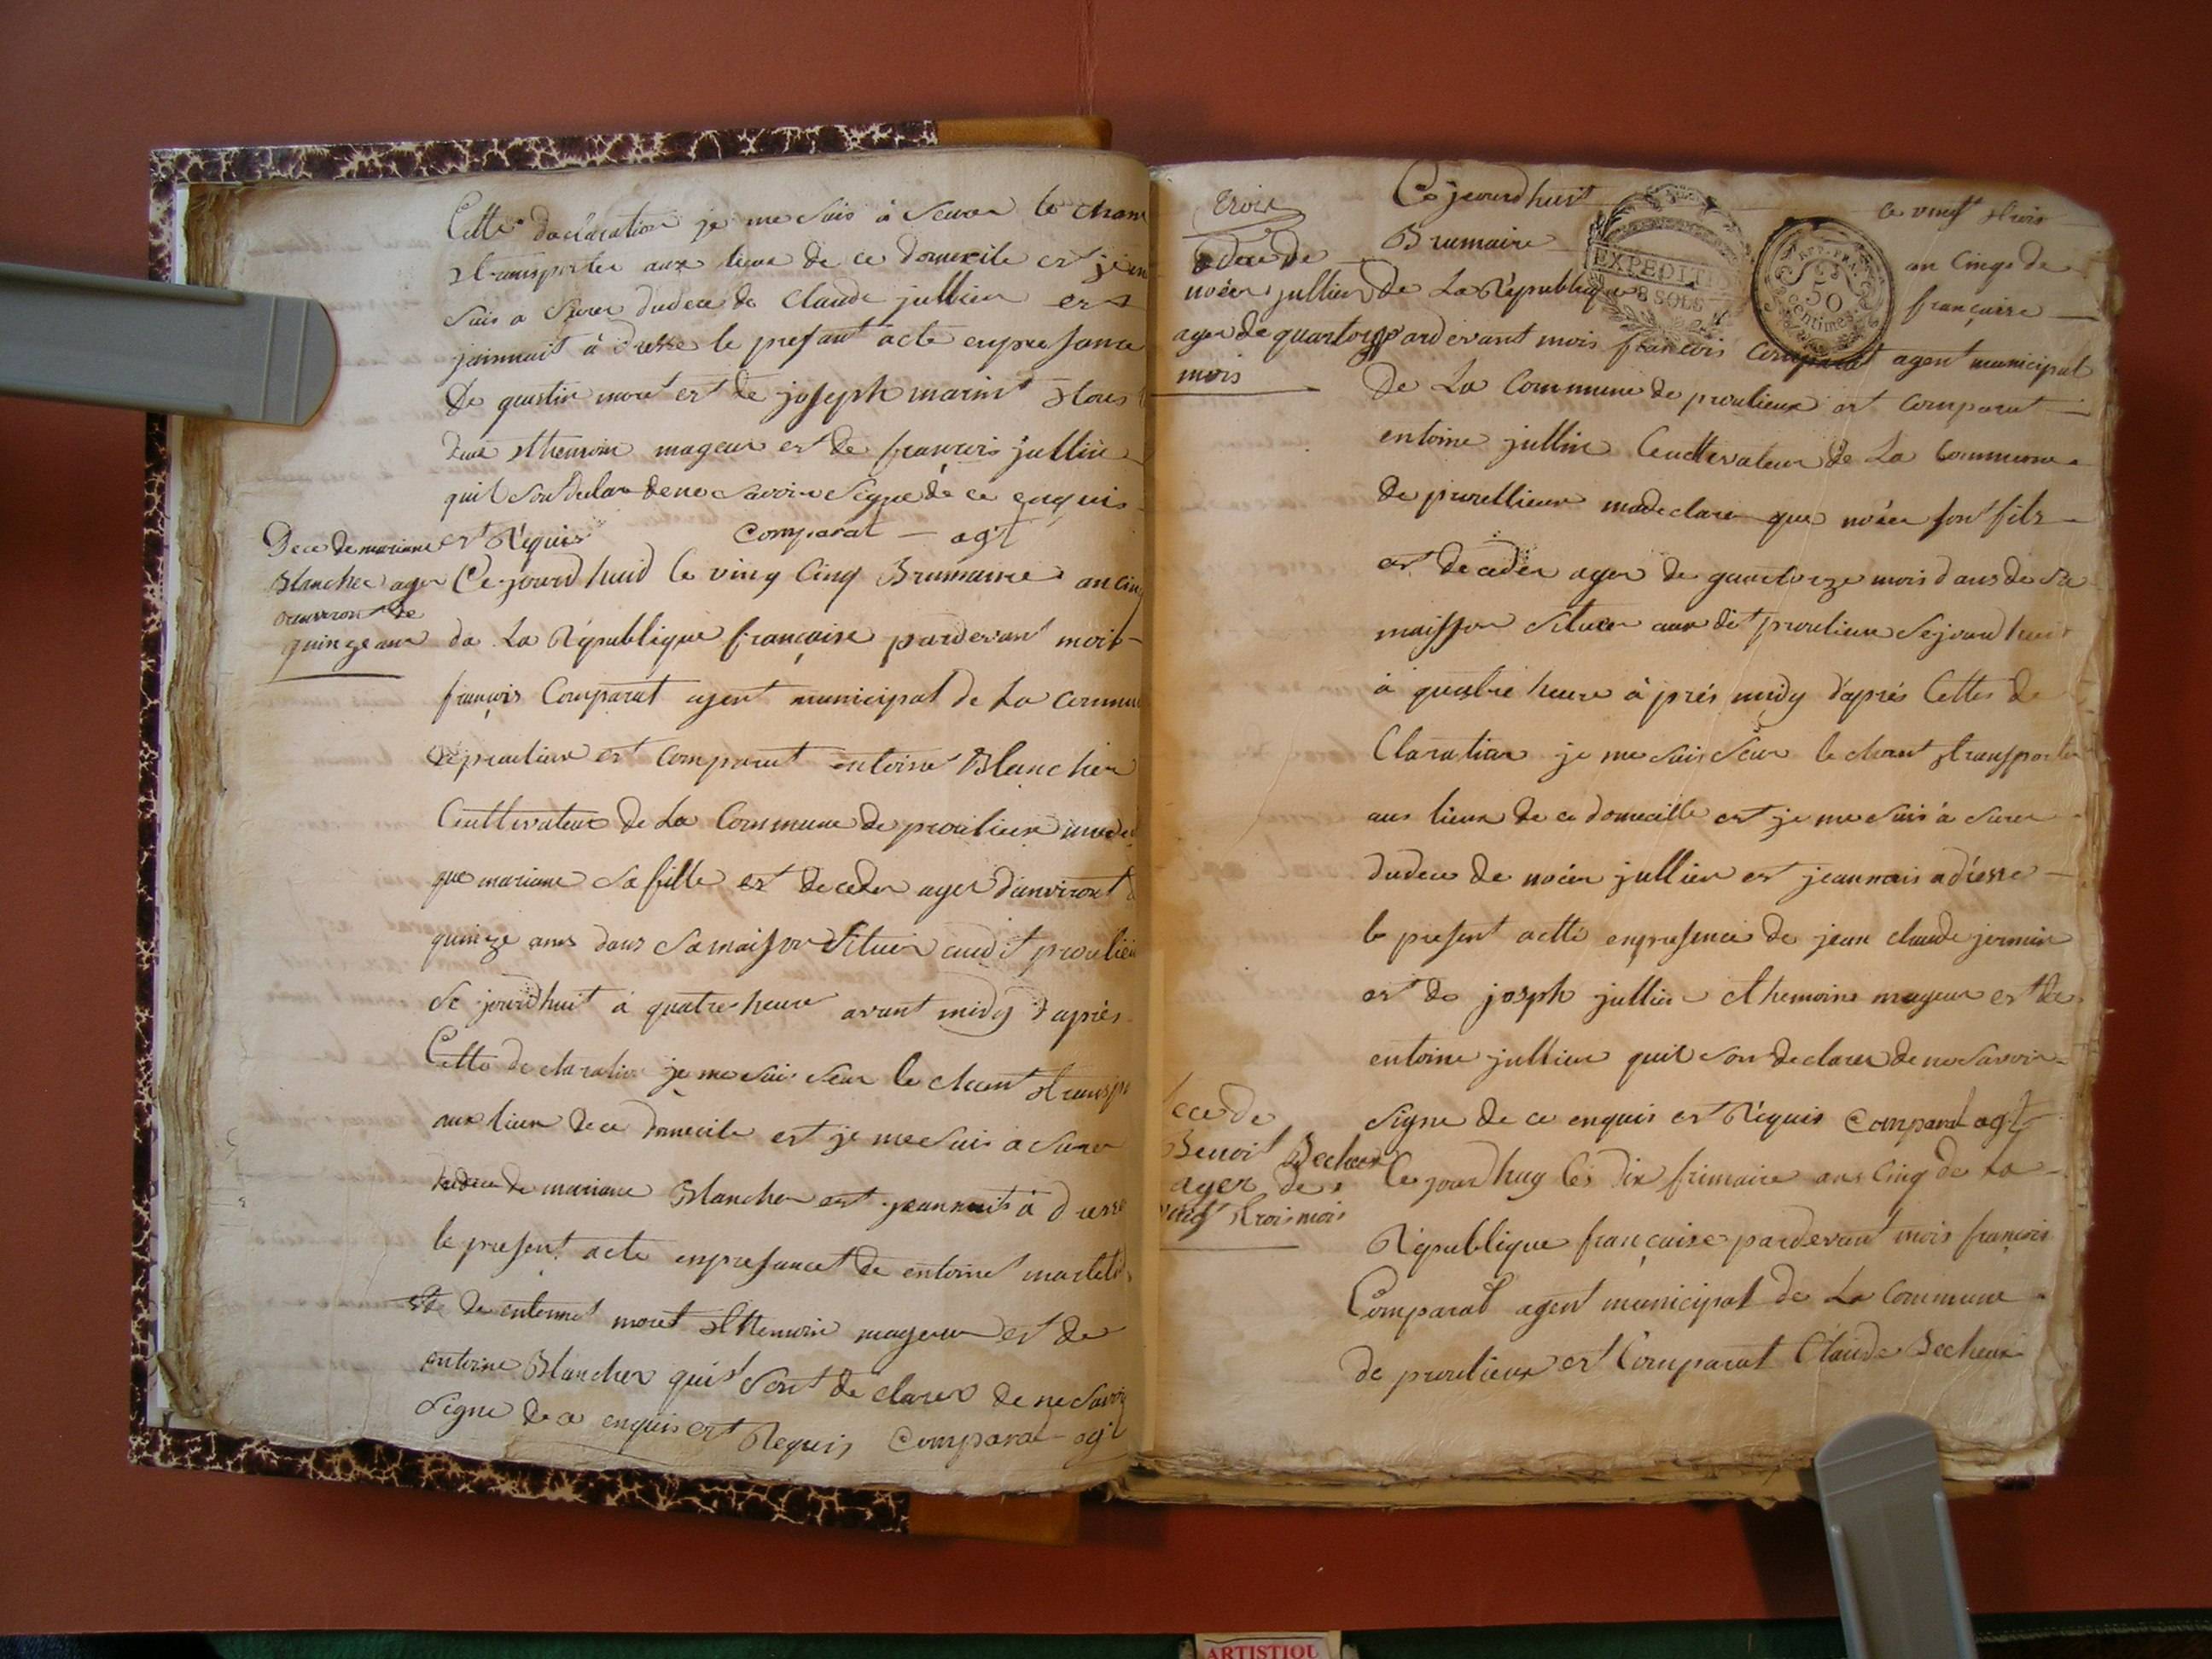 Cette declaration je me suis à seurer le cham
stransporter aux lieux de ce domicile est je m
suis a surer dudece de Claude jullien est
jeannait à dresse le presant acte enpresance
De questin moret est de joseph marint stous
deux sthemoin mageur est de francois jullien
quil son declare de ne savoir signe de ce enquis
est Requis Comparat - agt
Dece de mariane
Blancher ager
danviront de
quinze ans
Ce jourd huid le ving Cinq Brumaire an cinq
de La République française pardevant mois
françois Comparat agent municipal de La commu
de proulieux est comparut entoine Blancher
Cultivateur de La Commune de proulieux made
que mariane sa fille est deceder ager d'anviront d
quinze ans dans sa maison situer audit proulieu
se jourdhuit à quatre heure avant midy d'après
Cette declaration je me suis seur le chant stransp
aux lieux de ce domicile est je me suis a surer
dudece de mariane Blancher est jeannait à dresse
le present acte enpresance de entoine martelet
est de entoine moret sthemoin mageur est de
entoine Blancher quil sont declarer de ne savoir
signe de ce enquis est Requis Comparat agt
trois
Ce jourd huit le vingt strois
Brumaire an Cinqs de
EXPEDITION
8 SOLS
REP. FRA.
50
centimes
dece de
noéer jullien
ager de quartorze
mois
De La République française
Pardevant mois francois Comparat agent municipal
De La Commune de proulieux est Comparut
entoine jullien Ceultivateur de La Commune
de proullieux madeclare que noéer son fils
est deceder ager de quartorze mois dans de sa
maison situer aux dit proulieux sejourdhuit
à quatre heure à près midy d'après Cettes de
Claration je me suis seur le chant stransporter
aux lieux de ce domicille est je me suis à surer
dudece de noéer jullien est jeannais a dresse
le present actte enpresence de jean claude jermin
est de joseph jullien sthemoins mageur est de
entoine jullien quil son declarer de ne savoir
signe de ce enquis est Réquis Comparat agt
dece de
Benoit Becheur
ager de
vingt strois mois
Ce jourd huy les dix frimaire ans Cinq de La
République française pardevant mois françois
Comparat agent municipal de La Commune
de proulieux est Comparut Claude Becheur
ARTISTIQU